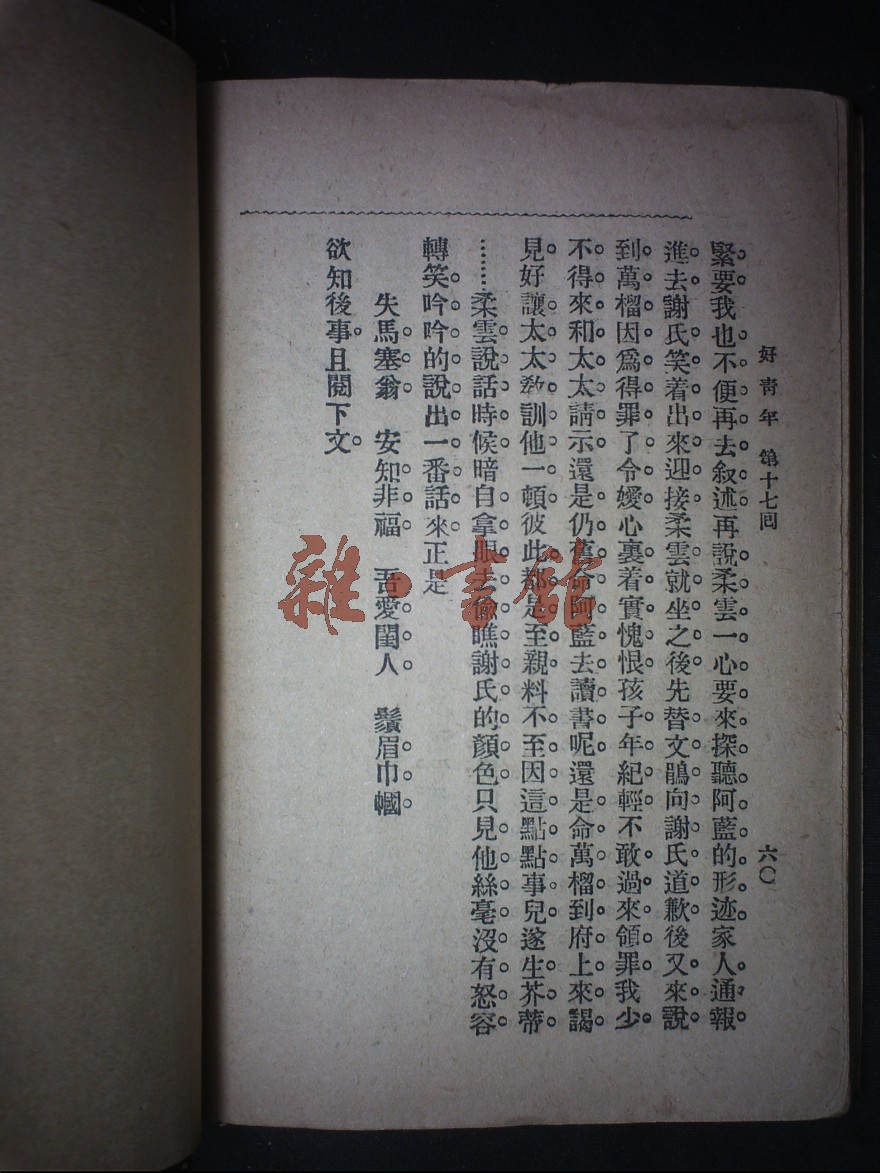 好青年 第十七回 六〇
緊要我也不便再去叙述再說柔雲一心要來探聽阿藍的形迹家人通報
進去謝氏笑着出來迎接柔雲就坐之後先替文鵑向謝氏道歉後又來說
到萬榴因爲得罪了令嬡心裏着實愧恨孩子年紀輕不敢過來領罪我少
不得來和太太請示還是仍舊命阿藍去讀書呢還是命萬榴到府上來謁
見好讓太太敎訓他一頓彼此都是至親料不至因這點點事兒遂生芥蒂
………柔雲說話時候暗自拿眼去偸瞧謝氏的顏色只見他絲毫沒有怒容
轉笑吟吟的說出一番話來正是
失馬塞翁 安知非福 吾愛閨人 鬚眉巾幗
欲知後事且閱下文
雜·書館